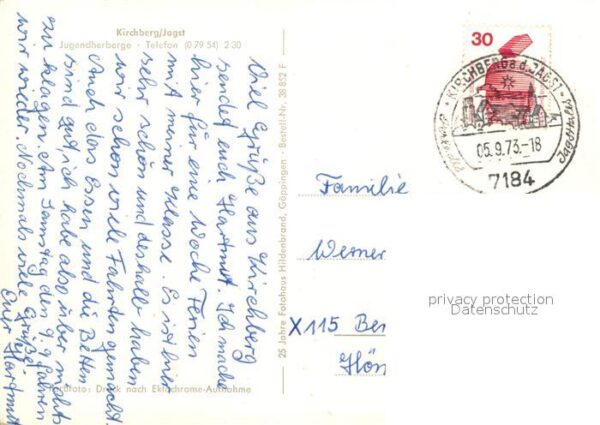 Kirchberg/Jagst
Jugendherberge · Telefon (0 79 54) 2 30
Viel Grüße aus Kirchberg
sendet euch Hartmut. Ich mache
hier für eine Woche Ferien
mit meiner Klasse. Es ist hier
sehr schön und deshalb haben
wir schon viele Fahrten gemacht.
Auch das Essen und die Betten
sind gut ich habe also über nichts
zu klagen. Am Samstag den 9.9. fahren
wir wieder. Nochmals viele Grüße
Euer Hartmut
25 Jahre Fotohaus Hildenbrand, Göppingen · Bestell-Nr. 38 852 F
Farbfoto: Druck nach Ektachrome-Aufnahme
30
KIRCHBERG a. d. JAGST
05.9.73.-18
Jagsttales
7184
Familie
Werner
X 115 Ber
Hön
privacy protection
Datenschutz